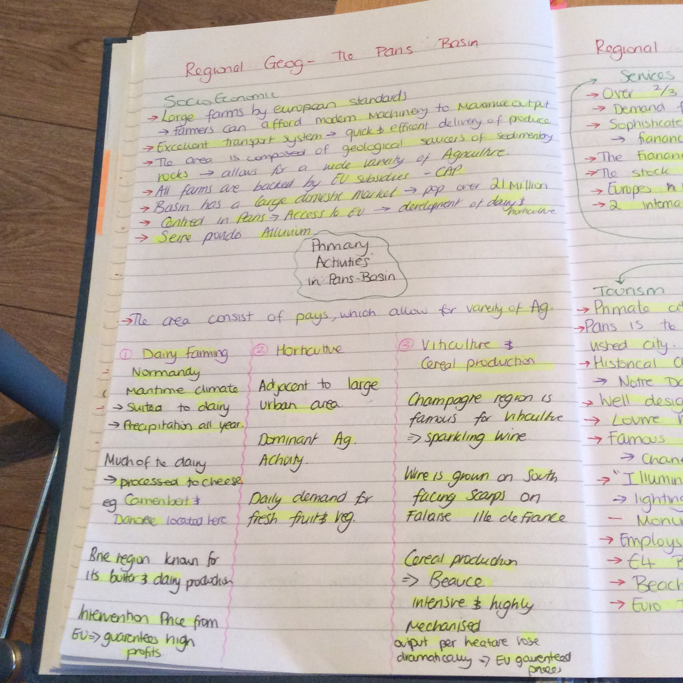 Regional Geog - The Paris Basin
SocioEconomic
→ Large farms by european standards
→ farmers can afford modern machinery to maximise output
→ Excellent transport system → quick & efficent delivery of produce
→ The area is composed of geological saucers of sedimentry
rocks → allows for a wide variety of Agriculture
→ All farms are backed by EU subsidies - CAP
→ Basin has a large domestic market → pop over 21 Million
→ Centred in Paris → Access to EU → development of dairy &
horticulture
→ Seine provide Alluvium
Primary
Activities
in Paris-Basin
→ The area consist of pays, which allow for variety of Ag.
① Dairy farming
Normandy
Maritime climate
→ Suited to dairy
→ Precipitation all year
Much of the dairy
→ processed to cheese
eg Camenbot &
Danone located here
Brie region known for
its butter & dairy production
Intervention Price from
EU => guarentees high
profits
② Horticulture
Adjacent to large
urban area
Dominant Ag.
Activity.
Daily demand for
fresh fruit & veg.
③ Viticulture &
Cereal production
Champagne region is
famous for viticulture
=> sparkling wine
Wine is grown on South
facing scarps on
Falaise Ille de France
Cereal production
=> Beauce
intensive & highly
Mechanised
output per heatare rose
dramatically => EU gaurenteed
prices
Regional
Services
→ Over 2/3
→ Demand
→ Sophisticate
→ The
→ The stock
→ Europes
→ 2 interna
Tourism
→ Primate
→ Paris is the
ushed city.
→ Historical
→ Notre
→ Well desig
→ Louvre
→ Famous
→ "Illumin
→ lighting
- Monu
→ Employs
→ £4
→ Beach
→ Euro